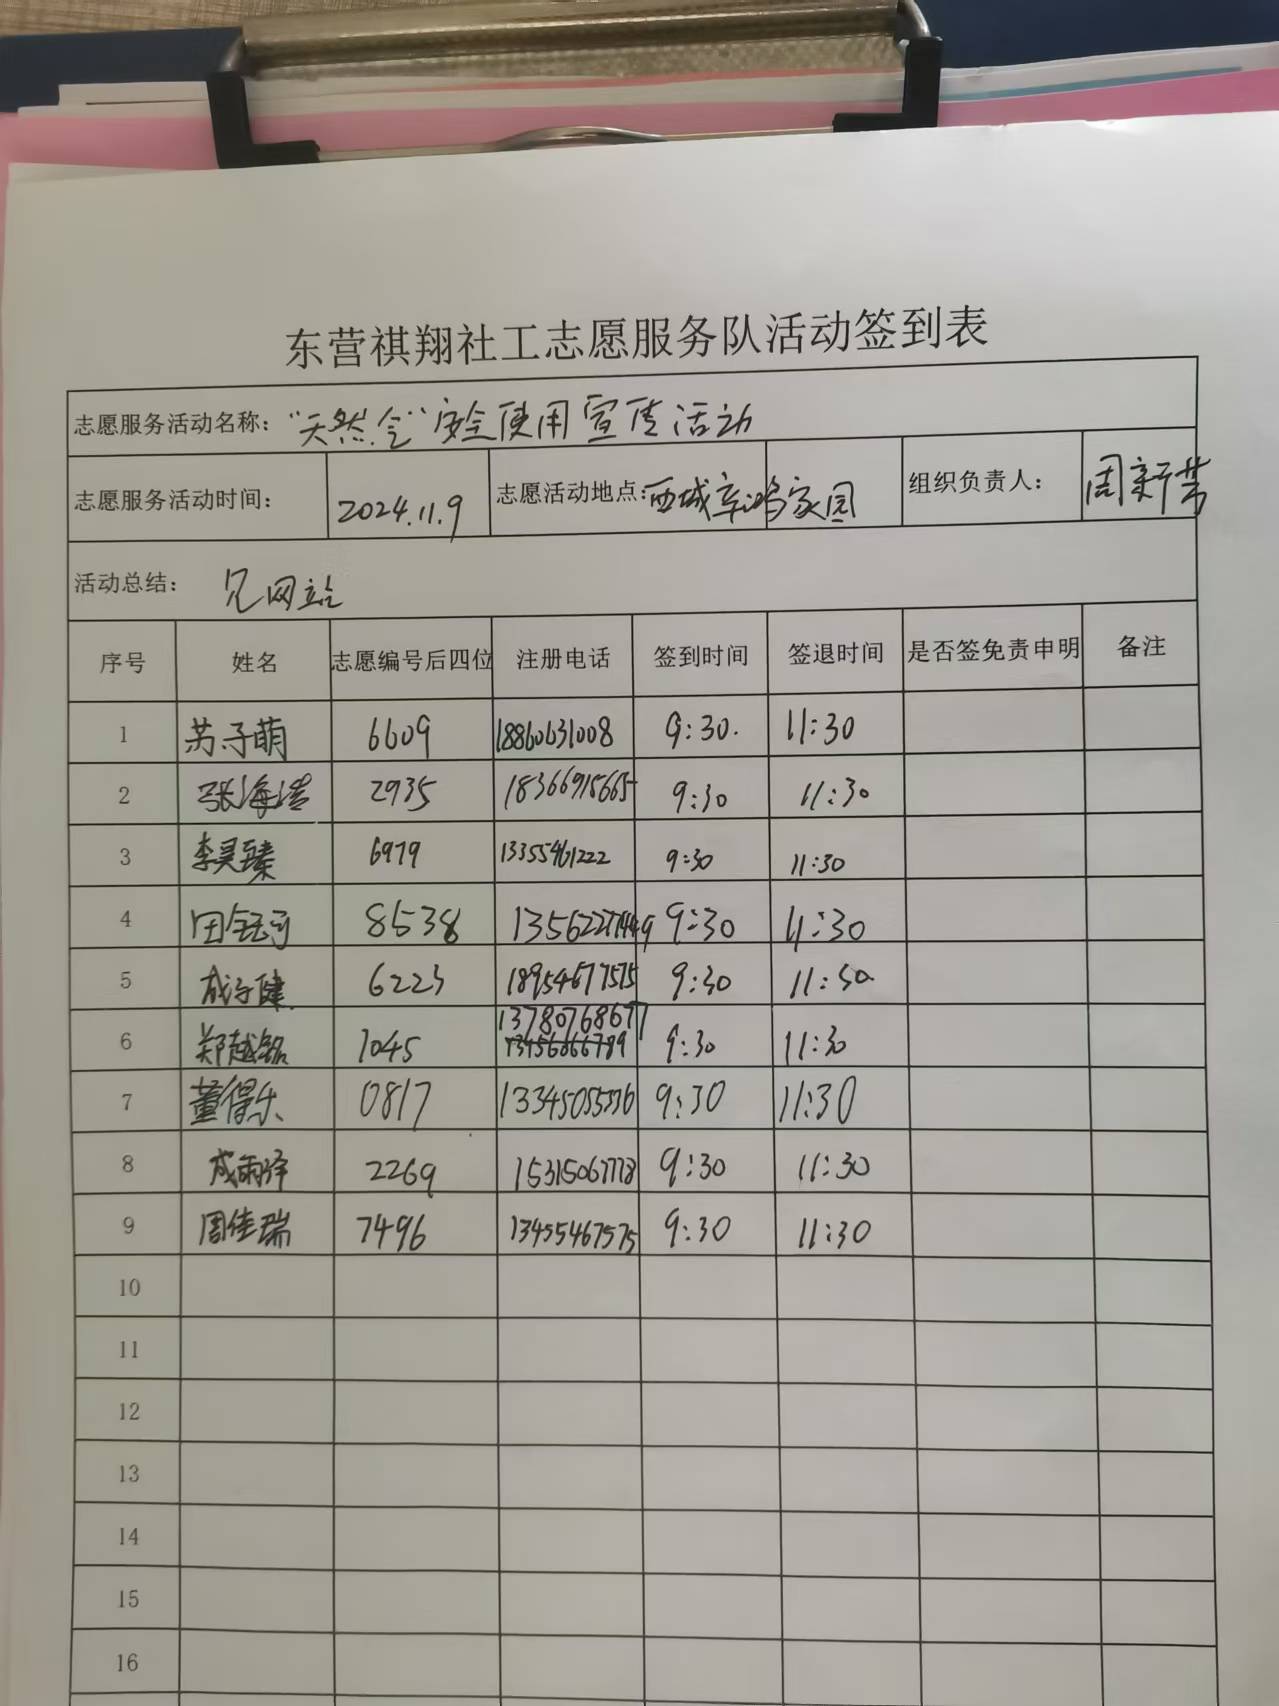 东营祺翔社工志愿服务队活动签到表
志愿服务活动名称："天然气"安全使用宣传活动
志愿服务活动时间： 2024.11.9 志愿活动地点：西城辛鸿家园 组织负责人： 周新芳
活动总结： 见网站
序号 姓名 志愿编号后四位 注册电话 签到时间 签退时间 是否签免责申明 备注
1 苏子萌 6609 18860631008 9:30. 11:30
2 张海洋 2935 18366915665 9:30 11:30
3 李昊臻 6979 13355461222 9:30 11:30
4 田钰 8538 9:30 11:30
5 成子健 6223 18954677575 9:30 11:30
13780768677
6 郑越铭 1045 13456866789 9:30 11:30
7 董得乐 0817 13345055336 9:30 11:30
8 成雨泽 2269 9:30 11:30
9 周佳瑞 7496 13455467575 9:30 11:30
10
11
12
13
14
15
16